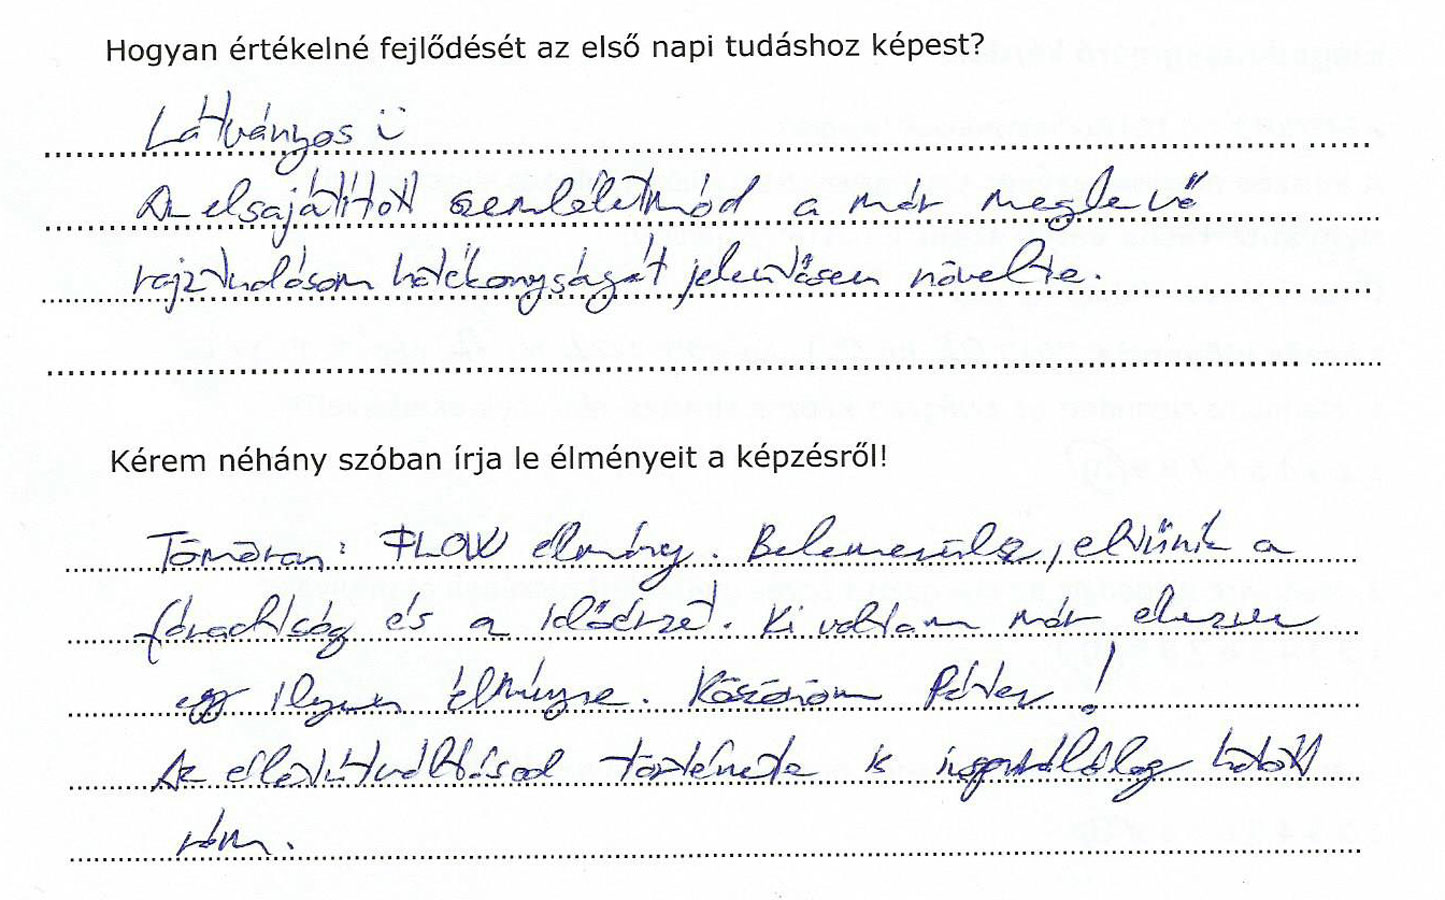 Hogyan értékelné fejlődését az első napi tudáshoz képest?
Látványos ü
Az elsajátított szemléletmód a már meglevő
rajztudásom hatékonyságát jelentősen növelte.
Kérem néhány szóban írja le élményeit a képzésről!
Tömören: FLOW élmény. Belemerülsz, eltűnik a
fáradtság és a időérzet. Ki voltam már éhezve
egy ilyen élményre. Köszönöm Péter!
Az életútváltásod története is inspirálólag hatott
rám.